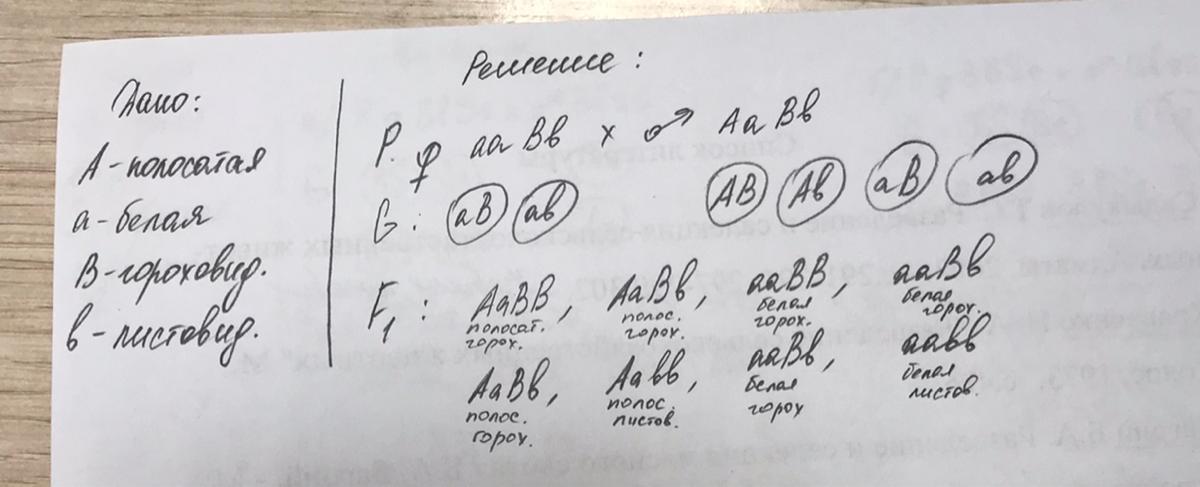 Решение:
Дано:
А - полосатая
а - белая
В - гороховид.
в - листовид.
P. ♀ ааВв x ♂ АаВв
G: аВ ав АВ Ав аВ ав
F₁: АаВВ, АаВв, ааВВ, ааВв
полосат. полос. белая белая
горох. горох. горох. горох.
АаВв, Аавв, ааВв, аавв
полос. полос. белая белая
горох. листов. горох листов.
Список литературы